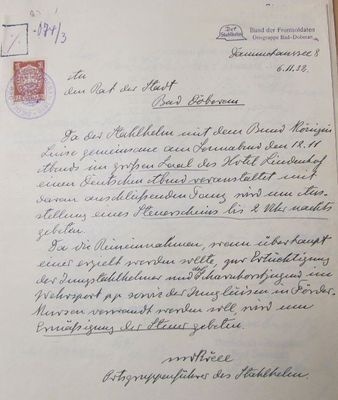 -074/3
Der
Stahlhelm
Bund der Frontsoldaten
Ortsgruppe Bad-Doberan
Dammchaussee 8
6.11.32.
An
den Rat der Stadt
Bad Doberan
Da der Stahlhelm mit dem Bund Königin
Luise gemeinsame am Sonnabend den 12.11
Abends im großen Saal des Hotel Lindenhof
einen Deutschen Abend veranstaltet mit
daran anschließenden Tanz wird um Aus-
stellung eines Steuerscheins bis 2 Uhr nachts
gebeten.
Da die Reineinnahmen, wenn überhaupt
einer erzielt werden sollte, zur Ertüchtigung
der Jungstahlhelmer und der Scharnhorstjugend im
Wehrsport pp sowie der Jungluisen in Förder-
Kursen verwandt werden soll wird um
Ermäßigung der Steuer gebeten.
Ortsgruppenführer des Stahlhelm